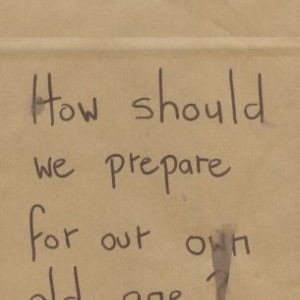 How should
we prepare
for our own
old age?